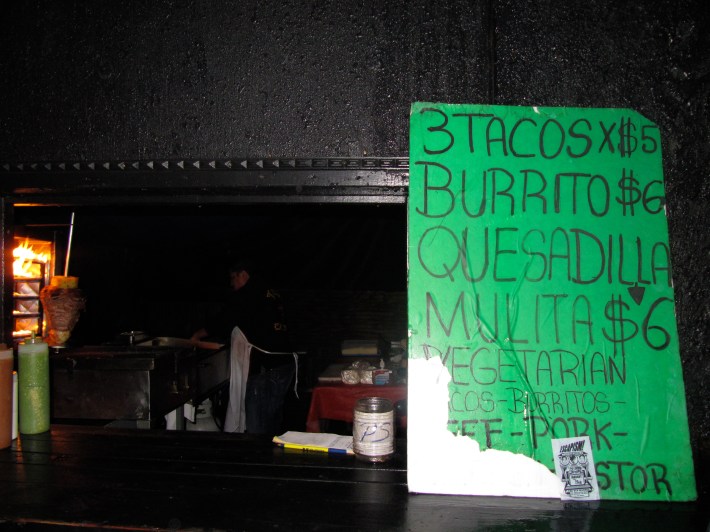 3 TACOS X $5
BURRITO $6
QUESADILLA
MULITA $6
VEGETARIAN
ACOS-BURRITOS-
EEF-PORK-
STOR
ESCAPISM!
PS